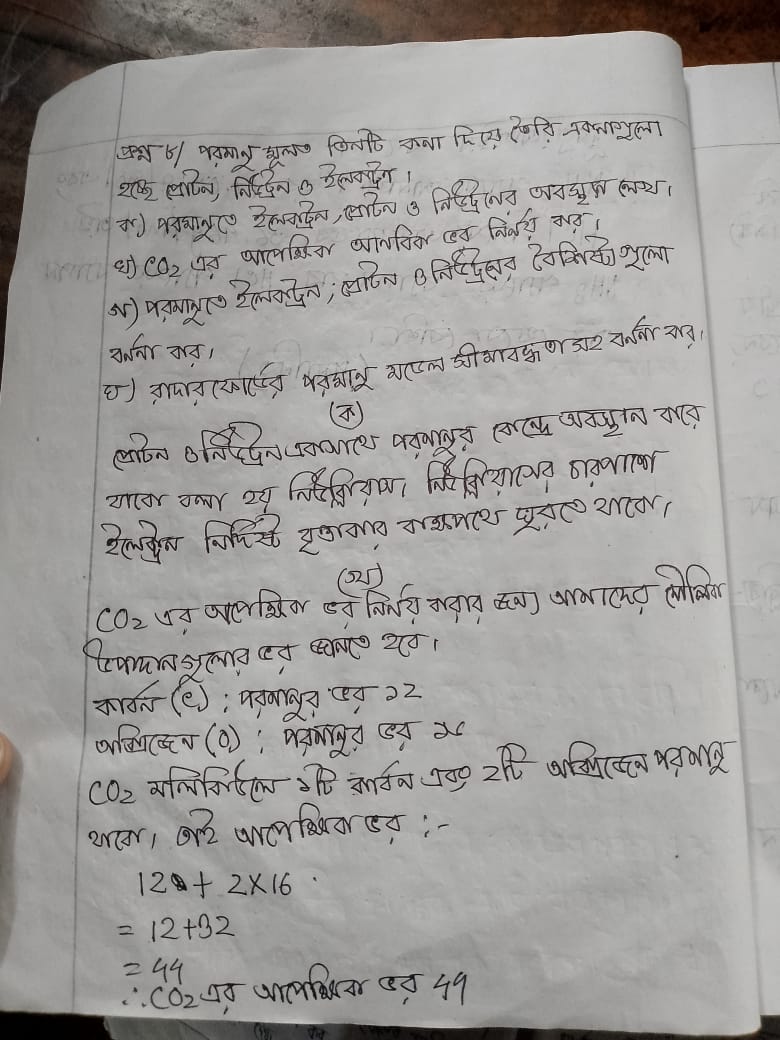 প্রশ্ন ৮/ পরমানু মূলত তিনটি কনা দিয়ে তৈরি এগুলো
হচ্ছে প্রোটন, নিউট্রন ও ইলেকট্রন।
ক) পরমানুতে ইলেকট্রন, প্রোটন ও নিউট্রনের অবস্থান লেখ।
খ) CO2 এর আপেক্ষিক আনবিক ভর নির্নয় কর।
গ) পরমানুতে ইলেকট্রন, প্রোটন ও নিউট্রনের বৈশিষ্ট্য গুলো
বর্ননা কর।
ঘ) রাদারফোর্ডের পরমানু মডেল সীমাবদ্ধতা সহ বর্ননা কর।
(ক)
প্রোটন ও নিউট্রন একসাথে পরমানুর কেন্দ্রে অবস্থান করে
যাকে বলা হয় নিউক্লিয়াস। নিউক্লিয়াসের চারপাশে
ইলেকট্রন নির্দিষ্ট বৃত্তাকার কক্ষপথে ঘুরতে থাকে।
(খ)
CO2 এর আপেক্ষিক ভর নির্নয় করার জন্য আমাদের মৌলিক
উপাদান গুলোর ভর জানতে হবে।
কার্বন (C) : পরমানুর ভর ১২
অক্সিজেন (O) : পরমানুর ভর ১৬
CO2 মলিকিউলে ১টি কার্বন এবং 2টি অক্সিজেন পরমানু
থাকে। তাই আপেক্ষিক ভর :-
12 + 2×16
= 12+32
= 44
∴ CO2 এর আপেক্ষিক ভর 44